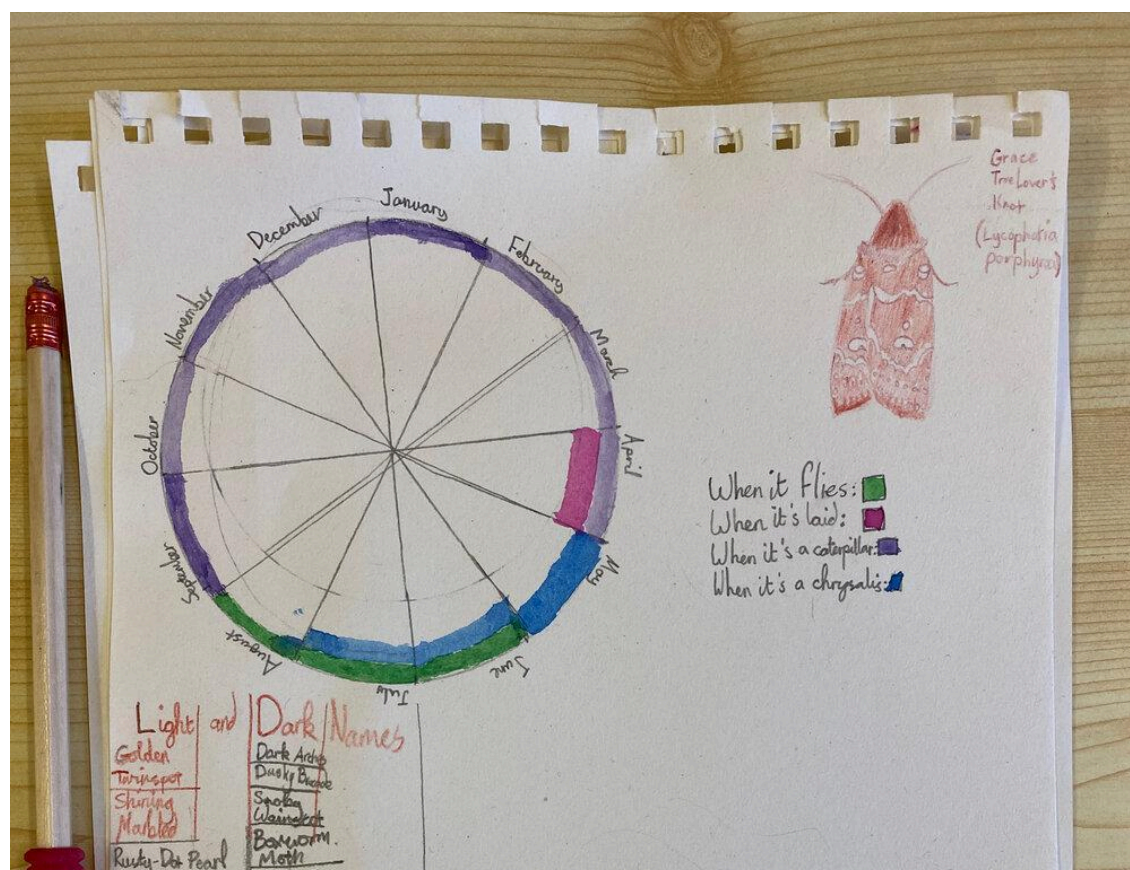 January
February
March
April
May
June
July
August
September
October
November
December
Grace
True Lover's
Knot
(Lycophotia
porphyrea)
When it flies:
When it's laid:
When it's a caterpillar:
When it's a chrysalis:
Light and Dark Names
Golden
Twinspot
Shining
Marbled
Rusty-Dot Pearl
Dark Arches
Dusky Brocade
Smoky
Wainscot
Boxworm.
Moth